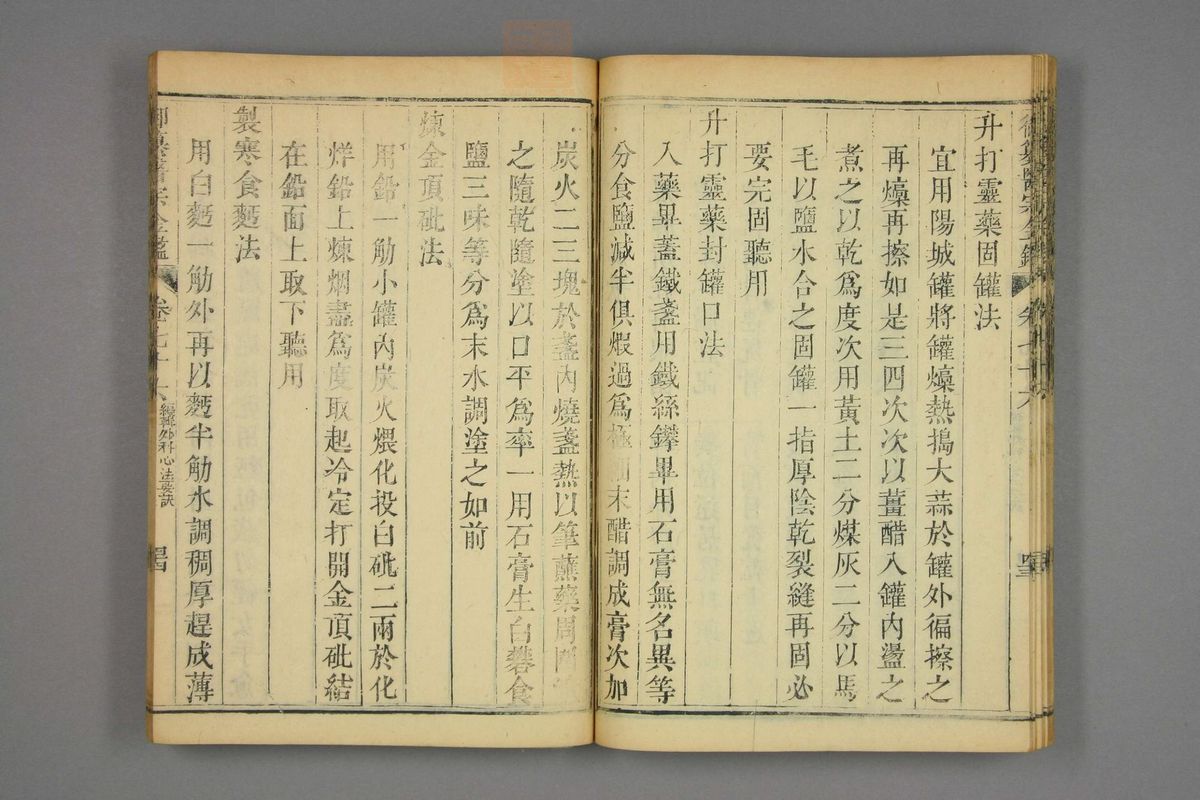 御纂醫宗金鑑 卷七十六
升打靈藥固罐法
宜用陽城罐將罐燥熱搗大蒜於罐外徧擦之
再燥再擦如是三四次次以薑醋入罐內盪之
煮之以乾爲度次用黃土二分煤灰二分以馬
毛以鹽水合之固罐一指厚陰乾裂縫再固必
要完固聽用
升打靈藥封罐口法
入藥畢蓋鐵盞用鐵絲攀畢用石膏無名異等
分食鹽減半俱煆過爲極細末醋調成膏次加
炭火二三塊於盞內燒盞熱以筆蘸藥周圍
之隨乾隨塗以口平爲率一用石膏生白礬食
鹽三味等分爲末水調塗之如前
煉金頂砒法
用鉛一觔小罐內炭火煨化投白砒二兩於化
烊鉛上煉烟盡爲度取起冷定打開金頂砒結
在鉛面上取下聽用
製寒食麪法
用白麪一觔外再以麪半觔水調稠厚趕成薄
御纂醫宗金鑑 卷七十六 編輯外科心法要訣